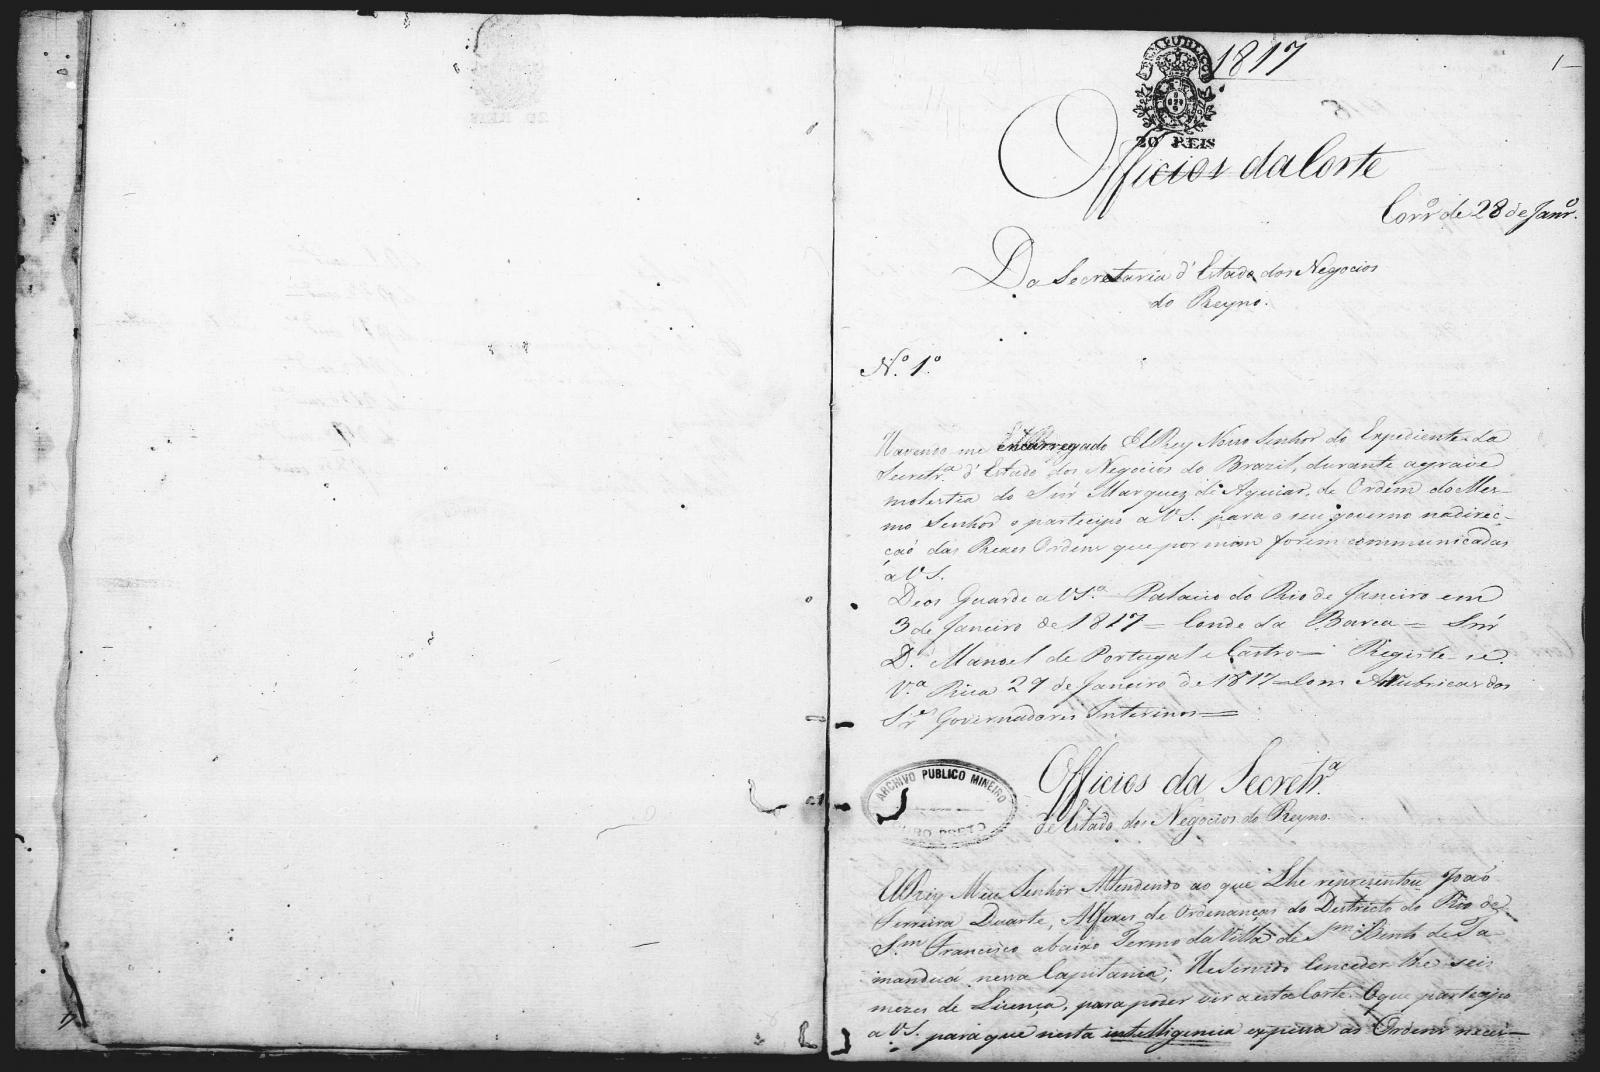 1817
1
20 REIS
Officios da Corte
Corr.º de 28 de Janr.º
Da Secretaria d'Estado dos Negocios
do Reyno.
N.º 1.º
Havendo-me encarregado ElRey Nosso Senhor do Expediente da
Secretr.ª d'Estado dos Negocios do Brazil, durante a grave
molestia do Snr' Marquez de Aguiar, de Ordem do Mes-
mo Senhor o participo a V S. para o seu governo na direc-
çaõ das Reaes Ordens que por mim forem communicadas
á V S.
Deos Guarde a V S.ª Palacio do Rio de Janeiro em
3 de Janeiro de 1817 = Conde da Barca = Snr'
D. Manoel de Portugal e Castro = Registe-se.
V.ª Rica 29 de Janeiro de 1817 = Com As rubricas dos
Sr.es Governadores Interinos =
ARCHIVO PUBLICO MINEIRO
OURO PRETO
Officios da Secretr.ª
de Estado dos Negocios do Reyno.
ElRey Meu Senhor Attendendo ao que Lhe representou Joaõ
Ferreira Duarte, Alferes de Ordenanças do Destricto do Rio de
S.m Francisco abaixo Termo da Villa de S.m Bento de Ta-
manduá nessa Capitania; He Servido Conceder-lhe seis
mezes de Licença, para poder vir a esta Corte. O que participo
a V S. para que nesta intelligencia expessa as Ordens neces-